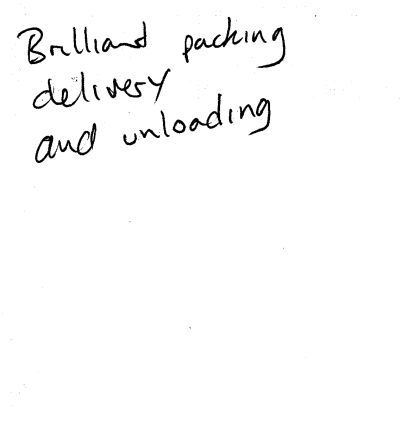 Brilliant packing
delivery
and unloading